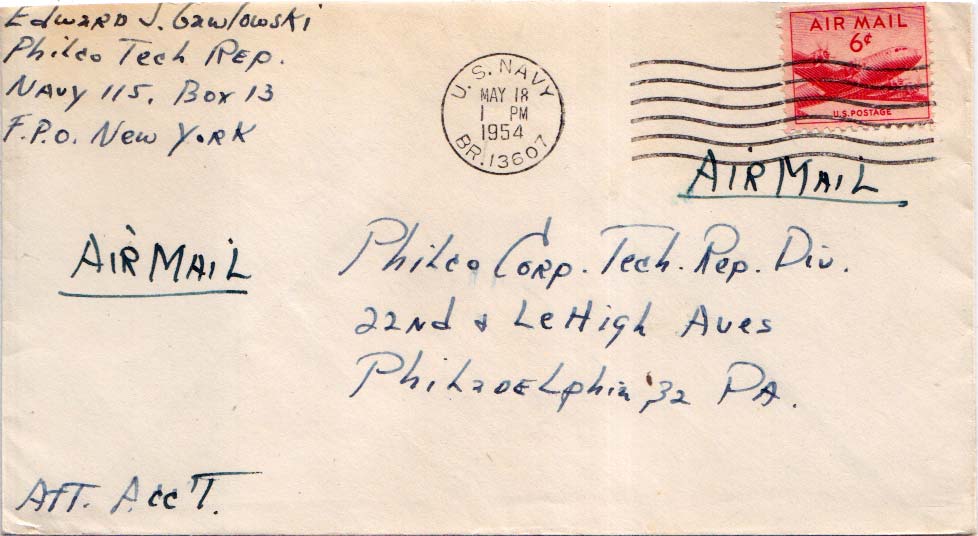 Edward J. Gawlowski
Philco Tech Rep.
Navy 115, Box 13
F.P.O. New York
U.S. NAVY
MAY 18
1 PM
1954
BR. 13607
AIR MAIL
6¢
U.S. POSTAGE
AIR MAIL
AIR MAIL
Philco Corp. Tech. Rep. Div.
22nd & LeHigh Aves
Philadelphia 32 PA.
Att. Acc'T.